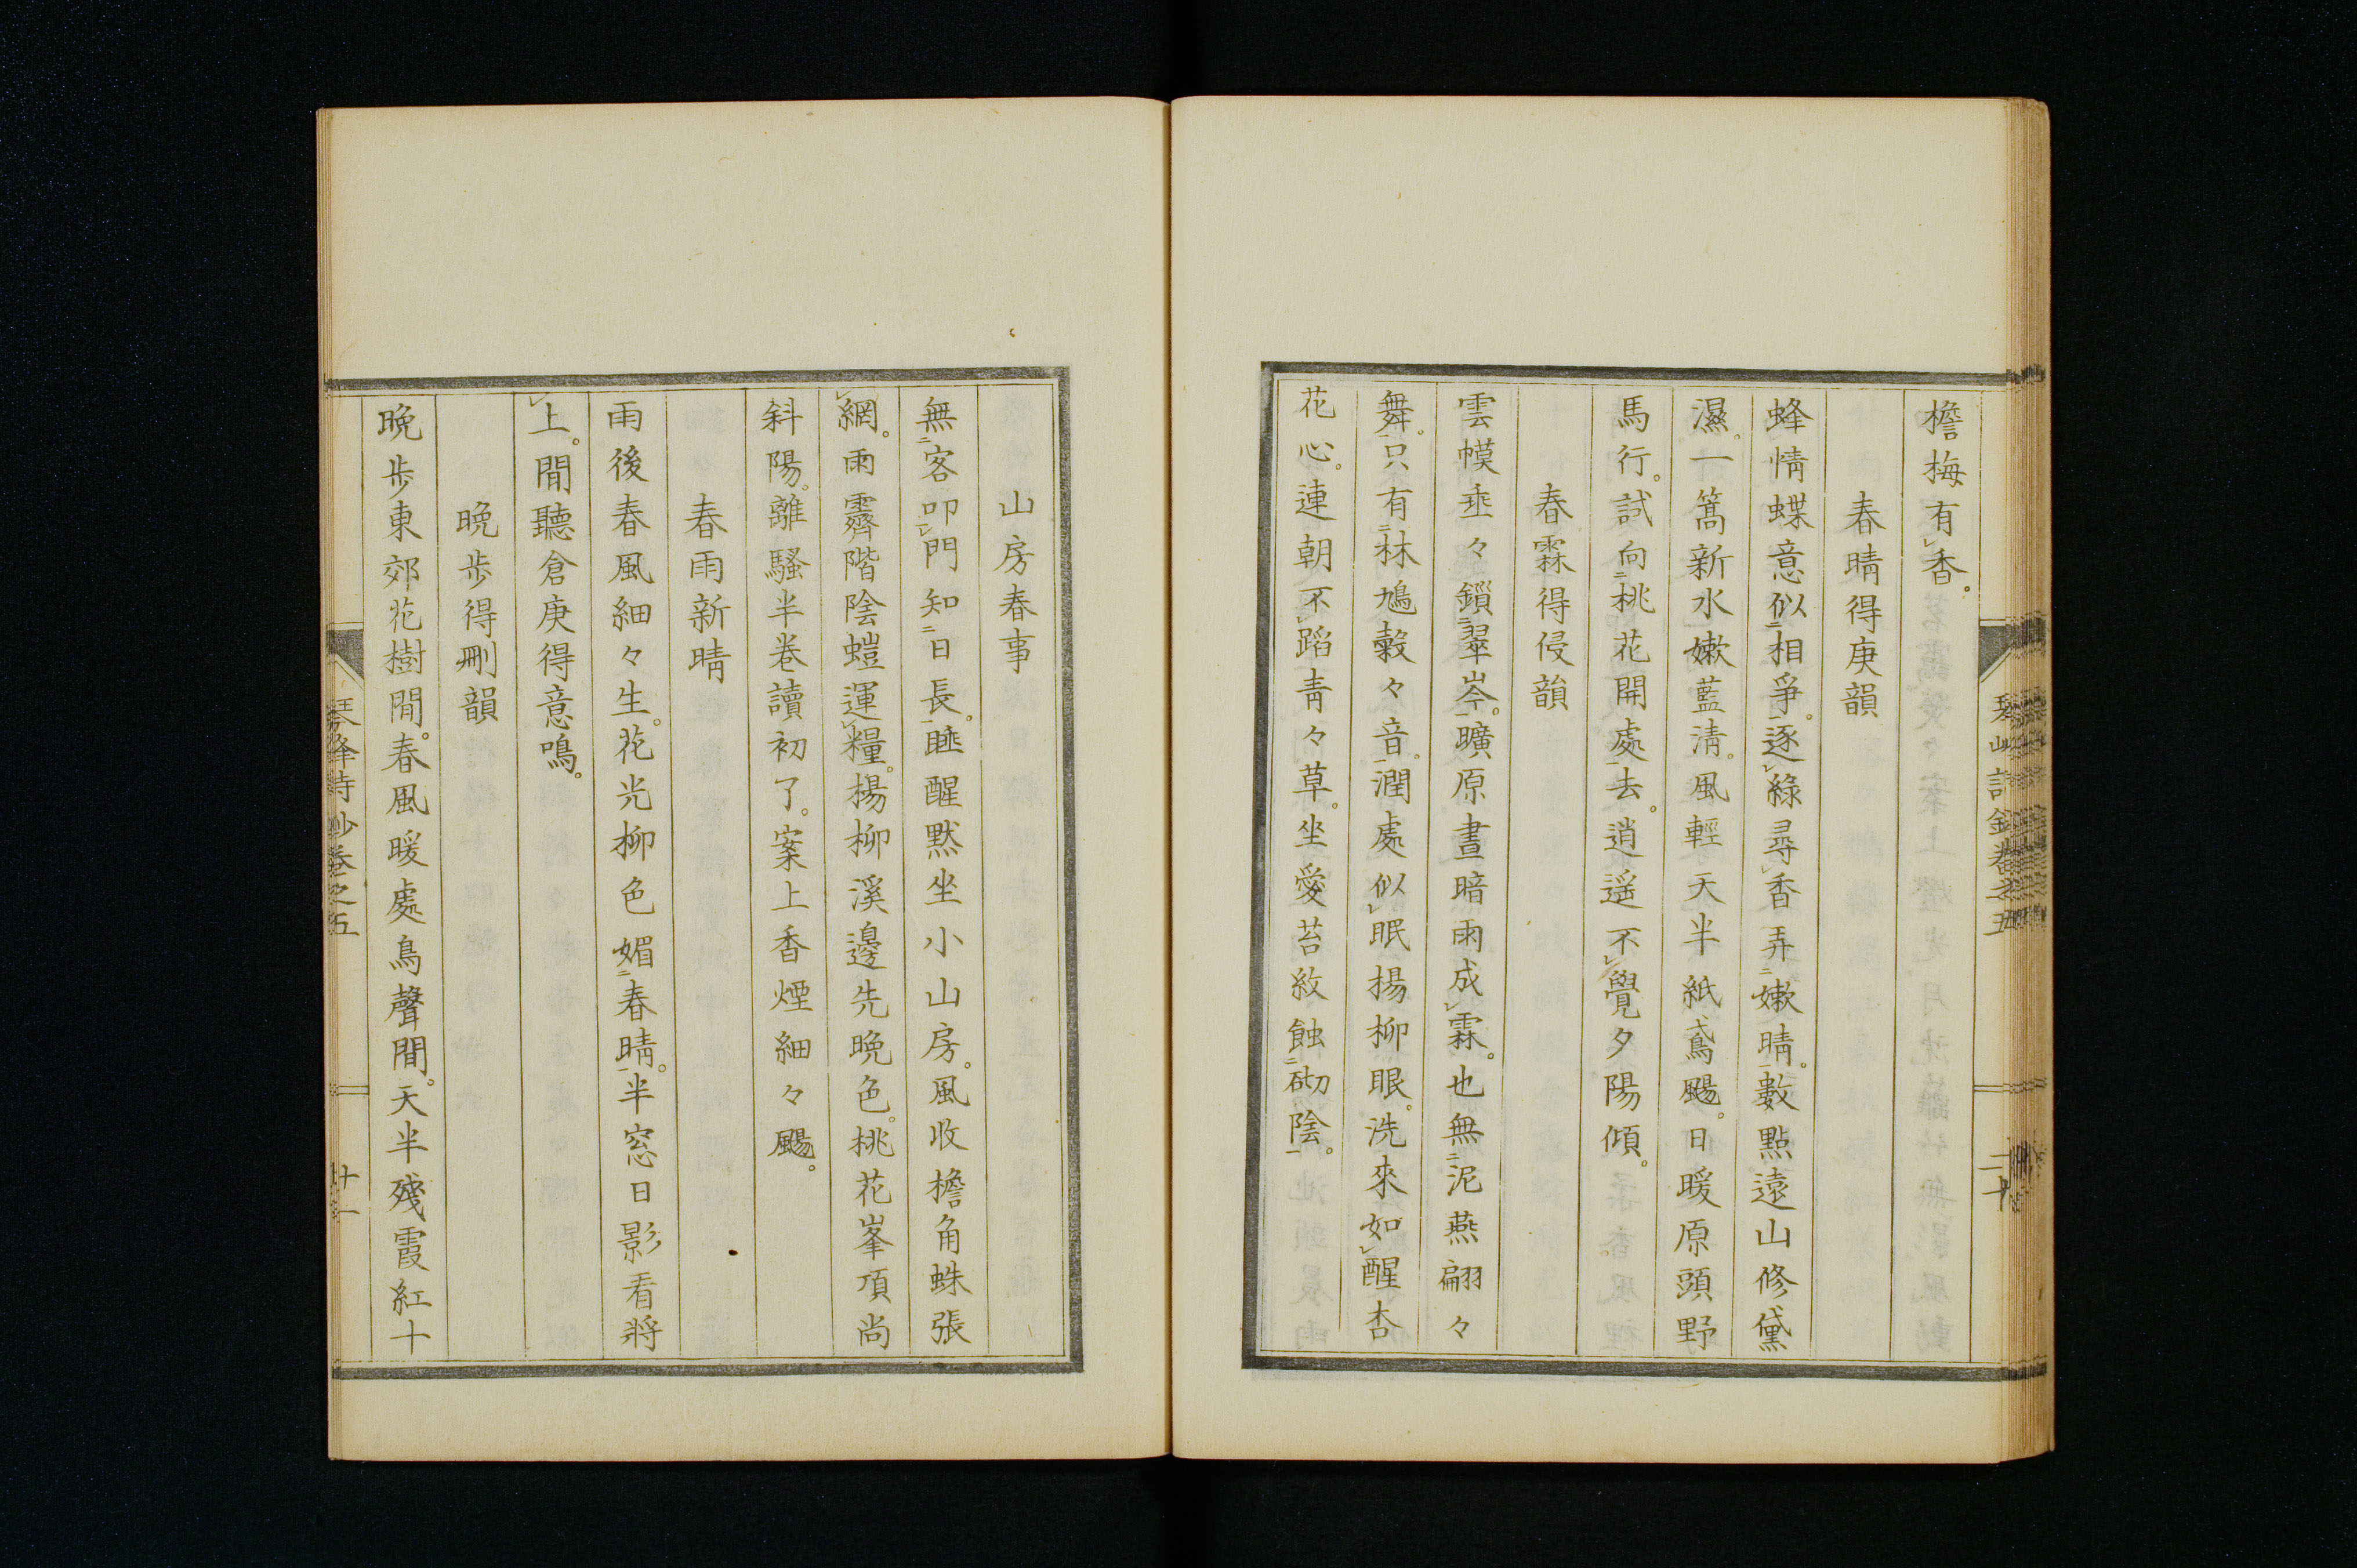 檐梅有香。
春晴得庚韻
蜂情蝶意似相爭。逐綠尋香弄嫩晴。數點遠山修黛
濕。一篙新水嫩藍清。風輕天半紙鳶颺。日暖原頭野
馬行。試向桃花開處去。逍遥不覺夕陽傾。
春霖得侵韻
雲幙垂々鎖翠岑。曠原晝暗雨成霖。也無泥燕翩々
舞。只有林鳩穀々音。潤處似眠楊柳眼。洗來如醒杏
花心。連朝不蹈青々草。坐愛苔紋蝕砌陰。
山房春事
無客叩門知日長。睡醒默坐小山房。風收檐角蛛張
網。雨霽階陰螘運糧。楊柳溪邊先晚色。桃花峯頂尚
斜陽。離騷半卷讀初了。案上香煙細々颺。
春雨新晴
雨後春風細々生。花光柳色媚春晴。半窓日影看將
上。閒聽倉庚得意鳴。
晚歩得刪韻
晚歩東郊花樹間。春風暖處鳥聲閒。天半殘霞紅十
琴峰詩鈔卷之五
廿一